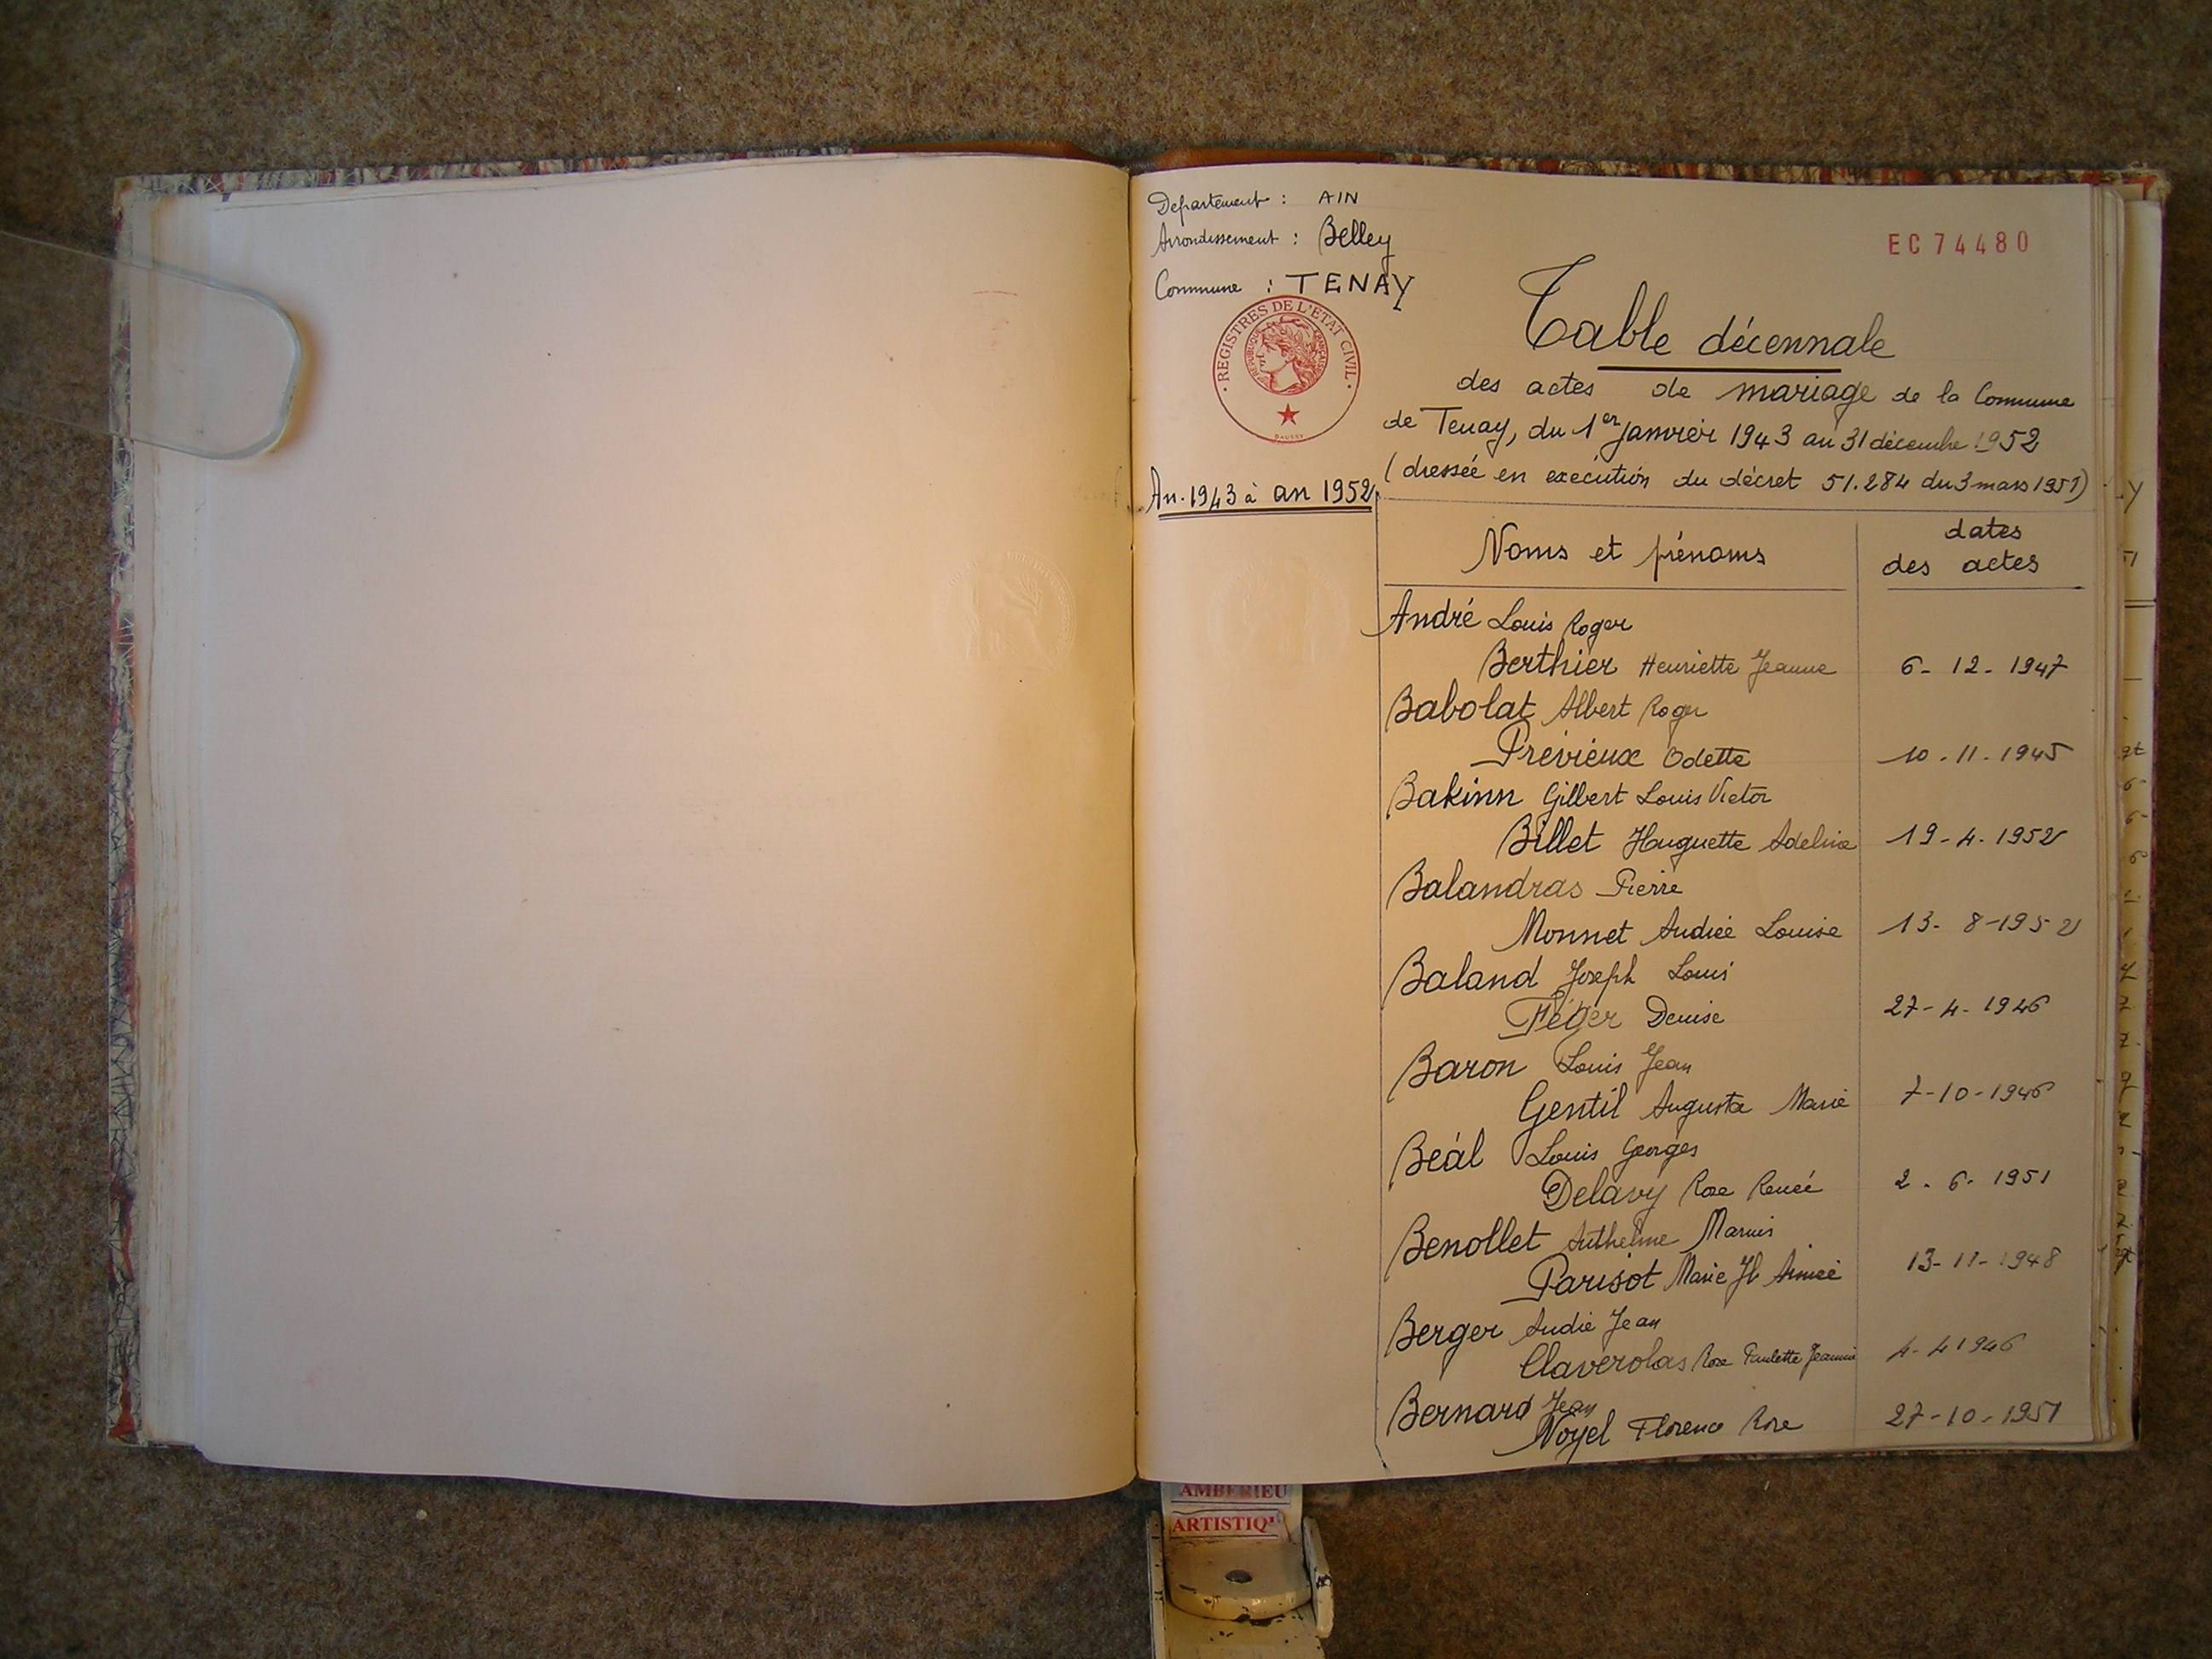 Département : AIN
Arrondissement : Belley
Commune : TENAY
EC 74480
REGISTRES DE L'ETAT CIVIL
REPUBLIQUE FRANÇAISE
Table décennale
des actes de mariage de la Commune
de Tenay, du 1er Janvier 1943 au 31 décembre 1952
(dressée en exécution du décret 51.284 du 3 mars 1951)
An. 1943 à an 1952
Noms et prénoms
dates
des actes
André Louis Roger
Berthier Henriette Jeanne 6- 12- 1947
Babolat Albert Roger
Prévieux Odette 10.11.1945
Bakinn Gilbert Louis Victor
Billet Huguette Adeline 19-4-1952
Balandras Pierre
Monnet Andrée Louise 13- 8-1952
Baland Joseph Louis
Denise 27-4-1946
Baron Louis Jean
Gentil Augusta Marie 7-10-1946
Béal Louis Georges
Delavy Rose Renée 2. 6. 1951
Benollet Anthelme Marius
Parisot Marie Aimée 13-11-1948
Berger André Jean
Claverolas Rose Paulette Jeannie 4-4 1946
Bernard Jean
Noyel Florence Rose 27-10-1951
AMBERIEU
ARTISTIQ